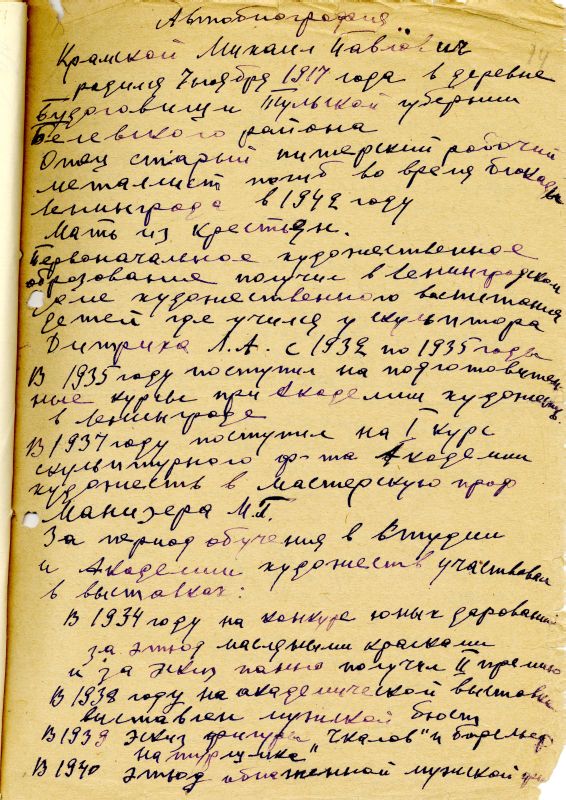 Автобиография
14
Крамской Михаил Павлович
родился 7 ноября 1917 года в деревне
Будоговищи Тульской губернии
Белевского района
Отец старый питерский рабочий
металлист погиб во время блокады
Ленинграда в 1942 году
Мать из крестьян.
Первоначальное художественное
образование получил в Ленинградском
доме художественного воспитания
детей где учился у скульптора
Дитриха Л.А. с 1932 по 1935 годы
В 1935 году поступил на подготовитель
ные курсы при Академии художеств.
в Ленинграде
В 1937 году поступил на I курс
скульптурного ф-та Академии
художеств в мастерскую проф
Манизера М.Г.
За период обучения в Студии
и Академии художеств участвовал
в выставках:
В 1934 году на конкурсе юных дарований
за этюд масляными красками
и за эскиз панно получил II премию
В 1938 году на академической выставке
выставлен мужской бюст
В 1939 эскиз фигуры "Чкалов" и барельеф
"натурщика"
В 1940 этюд обнаженной мужской